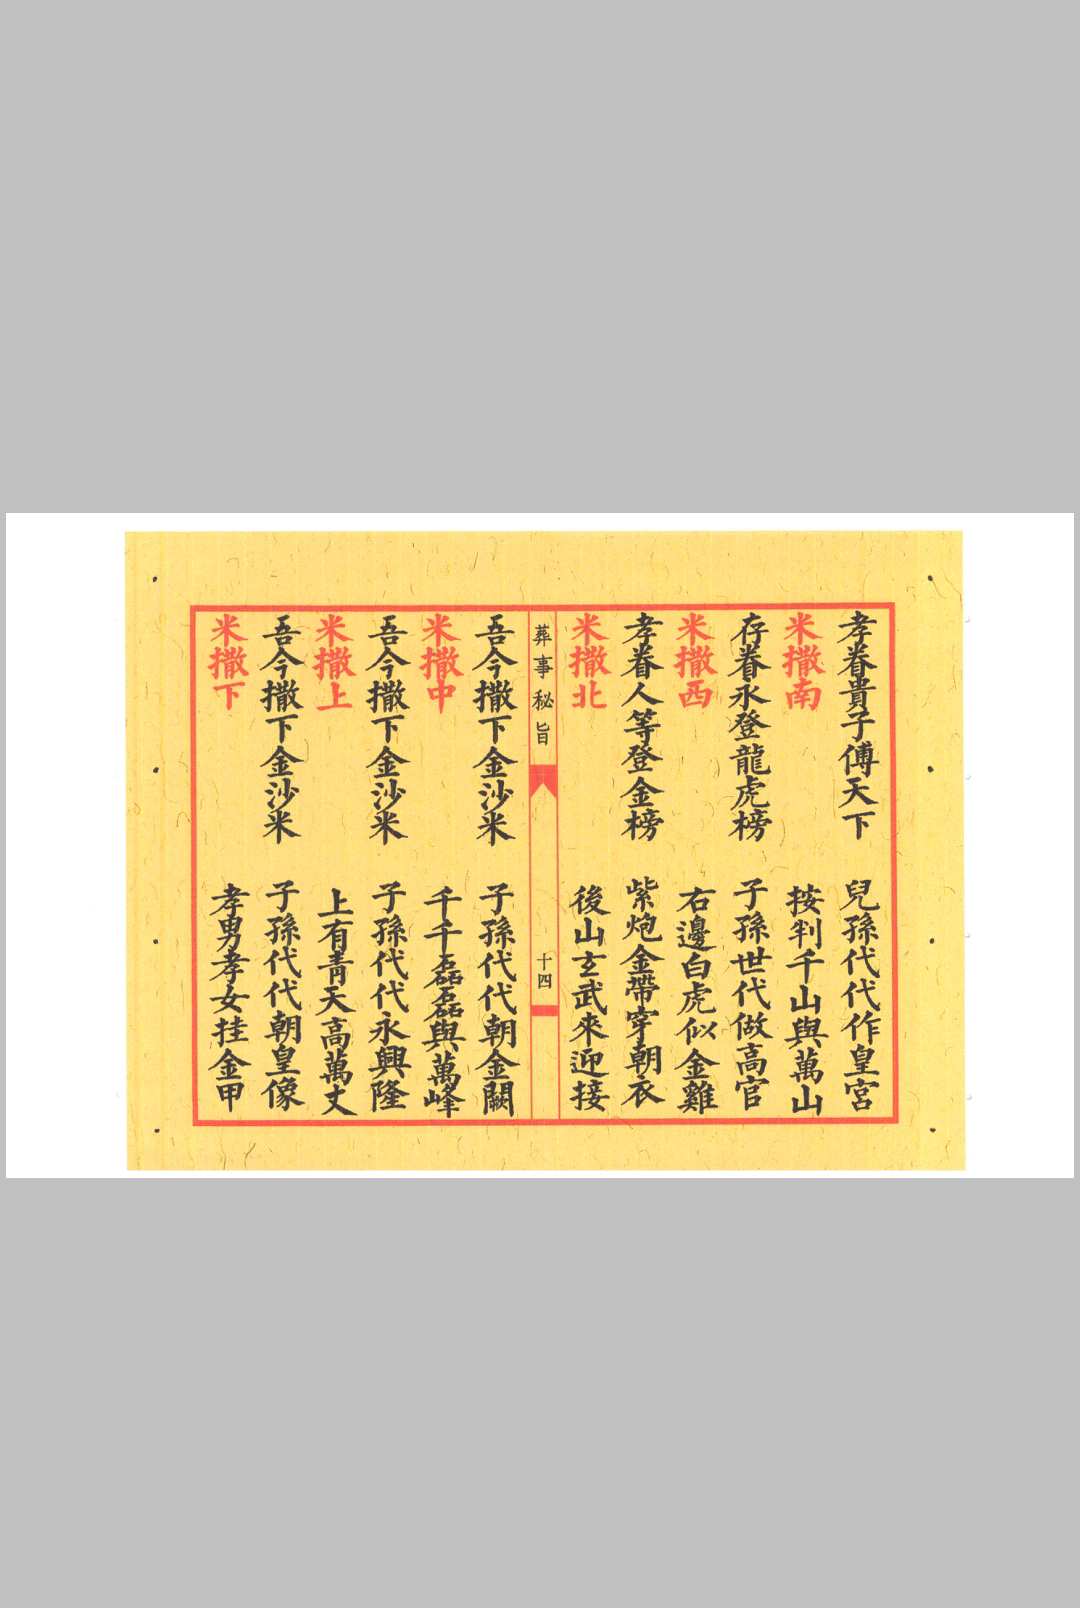 孝眷貴子傅天下　兒孫代代作皇宮
米撒南　按判千山與萬山
存眷永登龍虎榜　子孫世代做高官
米撒西　右邊白虎似金雞
孝眷人等登金榜　紫炮金帶穿朝衣
米撒北　後山玄武來迎接
葬事秘旨　十四
吾今撒下金沙米　子孫代代朝金闕
米撒中　千千磊磊與萬峰
吾今撒下金沙米　子孫代代永興隆
米撒上　上有青天高萬丈
吾今撒下金沙米　子孫代代朝皇像
米撒下　孝男孝女挂金甲